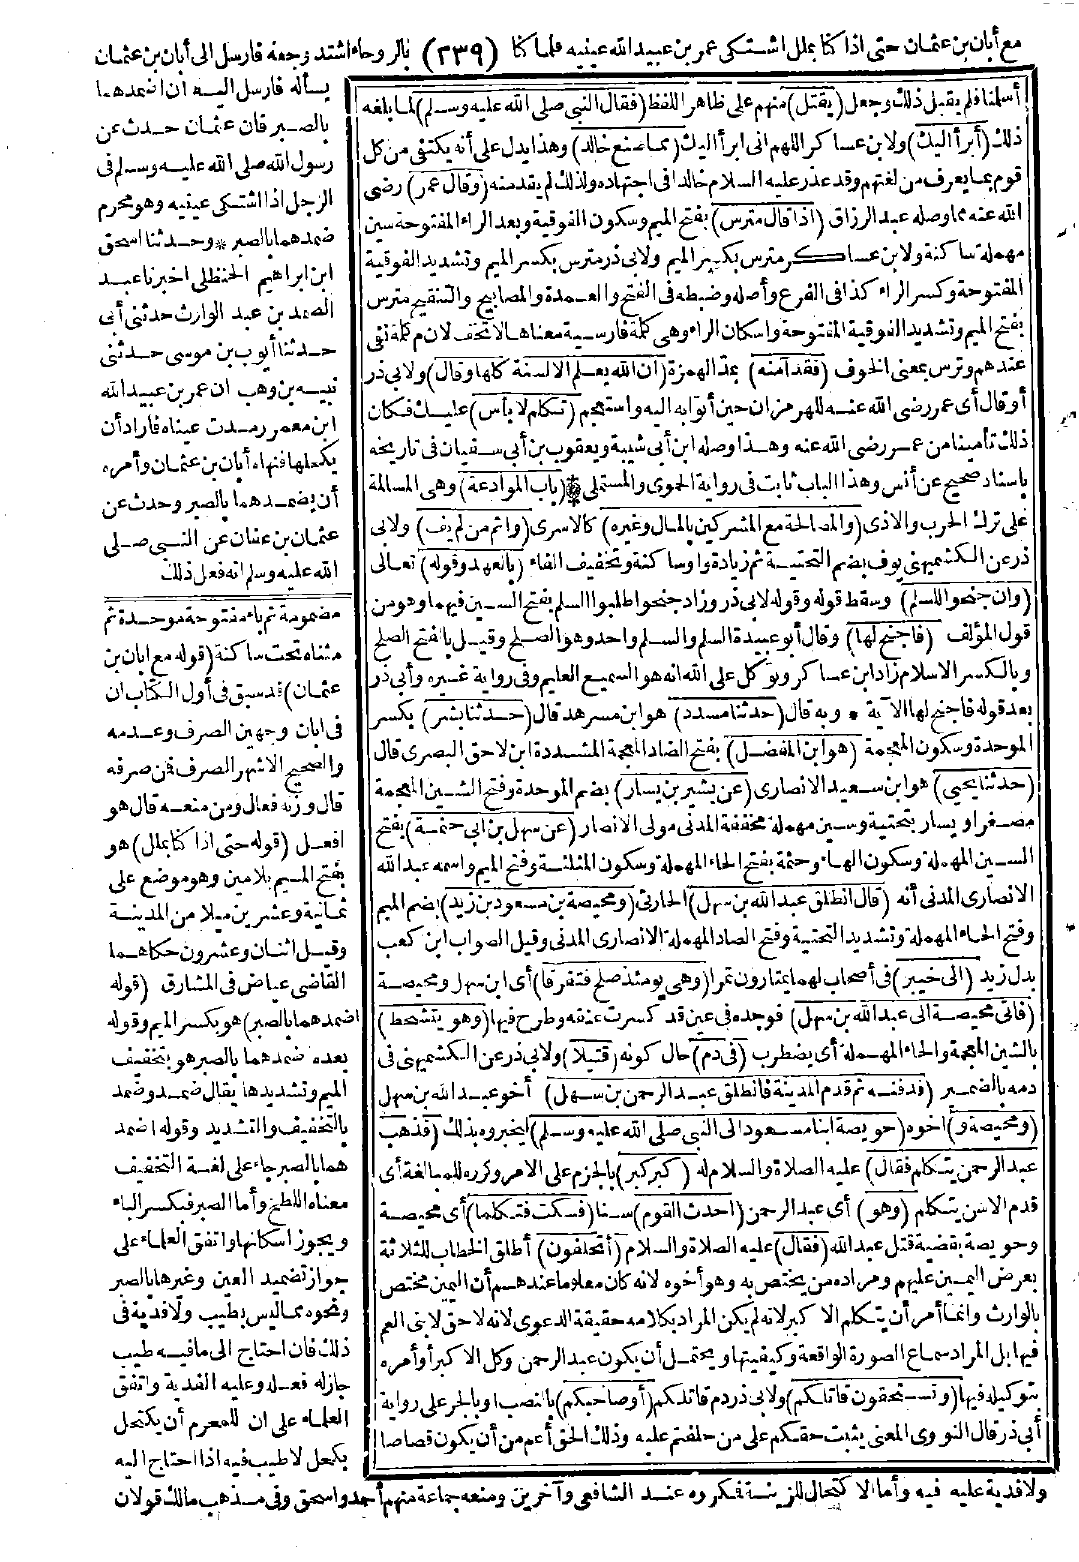 مع أبان بن عثمان حتى اذا كنا بملل اشتكى عمر بن عبيد الله عينيه فلما كنا (٢٣٩) بالروحاء اشتد وجعه فارسل الى أبان بن عثمان
أسلمنا فلم يقبل ذلك وجعل (يقتل) منهم على ظاهر اللفظ (فقال النبي صلى الله عليه وسلم) لما بلغه
ذلك (أبرأ اليك) ولابن عساكر اللهم انى ابرأ اليك (مما صنع خالد) وهذا يدل على أنه يكتفى من كل
قوم بما يعرف من لغتهم وقد عذر عليه السلام خالدا فى اجتهاده ولذلك لم يقد منه (وقال عمر) رضى
الله عنه مما وصله عبد الرزاق (اذا قال مترس) بفتح الميم وسكون الفوقية وبعد الراء المفتوحة سين
مهملة ساكنة ولابن عساكر مترس بكسر الميم ولابى ذر مترس بكسر الميم وتشديد الفوقية
المفتوحة وكسر الراء كذا فى الفرع وأصله وضبطه فى الفتح والعمدة والمصابيح والتنقيح مترس
بفتح الميم وتشديد الفوقية المفتوحة واسكان الراء وهى كلمة فارسية معناها لا تخف لان م كلمة نفى
عندهم وترس بمعنى الخوف (فقد آمنه) بمد الهمزة (ان الله يعلم الالسنة كلها وقال) ولابى ذر
أو قال أى عمر رضى الله عنه للهرمزان حين أتوا به اليه واستعجم (تكلم لا بأس) عليك فكان
ذلك تأمينا من عمر رضى الله عنه وهذا وصله ابن أبى شيبة ويعقوب بن أبى سفيان فى تاريخه
باسناد صحيح عن أنس وهذا الباب ثابت فى رواية الحموى والمستملى * (باب الموادعة) وهى المسالمة
على ترك الحرب والاذى (والمصالحة مع المشركين بالمال وغيره) كالاسرى (واثم من لم يف) ولابى
ذر عن الكشميهنى يوف بضم التحتية ثم زيادة واو ساكنة وتخفيف الفاء (بالعهد وقوله) تعالى
(وان جنحوا للسلم) وسقط قوله وقوله لابى ذر وزاد جنحوا طلبوا السلم بفتح السين فيهما وهو من
قول المؤلف (فاجنح لها) وقال أبو عبيدة السلم والسلم واحد وهو الصلح وقيل بالفتح الصلح
وبالكسر الاسلام زاد ابن عساكر وتوكل على الله انه هو السميع العليم وفى رواية غيره وأبى ذر
بعد قوله فاجنح لها الآية * وبه قال (حدثنا مسدد) هو ابن مسرهد قال (حدثنا بشر) بكسر
الموحدة وسكون المعجمة (هو ابن المفضل) بفتح الضاد المعجمة المشددة ابن لاحق البصرى قال
(حدثنا يحيى) هو ابن سعيد الانصارى (عن بشير بن يسار) بضم الموحدة وفتح الشين المعجمة
مصغرا ويسار بتحتية وسين مهملة مخففة المدنى مولى الانصار (عن سهل بن ابى حثمة) بفتح
السين المهملة وسكون الهاء وحثمة بفتح الحاء المهملة وسكون المثلثة وفتح الميم واسمه عبد الله
الانصارى المدنى أنه (قال انطلق عبد الله بن سهل) الحارثى (ومحيصة بن مسعود بن زيد) بضم الميم
وفتح الحاء المهملة وتشديد التحتية وفتح الصاد المهملة الانصارى المدنى وقيل الصواب ابن كعب
بدل زيد (الى خيبر) فى أصحاب لهما يمتارون تمرا (وهى يومئذ صلح فتفرقا) أى ابن سهل ومحيصة
(فاتى محيصة الى عبد الله بن سهل) فوجده فى عين قد كسرت عنقه وطرح فيها (وهو يتشحط)
بالشين المعجمة والحاء المهملة أى يضطرب (فى دم) حال كونه (قتيلا) ولابى ذر عن الكشميهنى فى
دمه بالضمير (فدفنه ثم قدم المدينة فانطلق عبد الرحمن بن سهل) أخو عبد الله بن سهل
(ومحيصة و) أخوه (حويصة ابنا مسعود الى النبي صلى الله عليه وسلم) ليخبروه بذلك (فذهب
عبد الرحمن يتكلم فقال) عليه الصلاة والسلام له (كبر كبر) بالجزم على الامر وكرره للمبالغة أى
قدم الاسن يتكلم (وهو) أى عبد الرحمن (أحدث القوم) سنا (فسكت فتكلما) أى محيصة
وحويصة بقضية قتل عبد الله (فقال) عليه الصلاة والسلام (أتحلفون) أطلق الخطاب للثلاثة
بعرض اليمين عليهم ومراده من يختص به وهو أخوه لانه كان معلوما عندهم أن اليمين مختص
بالوارث وانما أمر أن يتكلم الاكبر لانه لم يكن المراد بكلامه حقيقة الدعوى لانه لا حق لابنى العم
فيها بل المراد سماع الصورة الواقعة وكيفيتها ويحتمل أن يكون عبد الرحمن وكل الاكبر أو أمره
بتوكيله فيها (وتستحقون قاتلكم) ولابى ذر دم قاتلكم (أو صاحبكم) بالنصب او بالجر على رواية
أبى ذر قال النووى المعنى يثبت حقكم على من حلفتم عليه وذلك الحق أعم من أن يكون قصاصا
يسأله فارسل اليه ان اضمدهما
بالصبر فان عثمان حدث عن
رسول الله صلى الله عليه وسلم فى
الرجل اذا اشتكى عينيه وهو محرم
ضمدهما بالصبر * وحدثنا اسحق
ابن ابراهيم الحنظلى اخبرنا عبد
الصمد بن عبد الوارث حدثنى أبى
حدثنا أيوب بن موسى حدثنى
نبيه بن وهب ان عمر بن عبيد الله
ابن معمر رمدت عيناه فاراد أن
يكحلها فنهاه أبان بن عثمان وأمره
أن يضمدهما بالصبر وحدث عن
عثمان بن عفان عن النبى صلى
الله عليه وسلم انه فعل ذلك
مضمومة ثم باء مفتوحة موحدة ثم
مثناة تحت ساكنة (قوله مع ابان بن
عثمان) قد سبق فى أول الكتاب ان
فى ابان وجهين الصرف وعدمه
والصحيح الاشهر الصرف فمن صرفه
قال وزنه فعال ومن منعه قال هو
افعل (قوله حتى اذا كنا بملل) هو
بفتح الميم بلامين وهو موضع على
ثمانية وعشرين ميلا من المدينة
وقيل اثنان وعشرون حكاهما
القاضى عياض فى المشارق (قوله
اضمدهما بالصبر) هو بكسر الميم وقوله
بعده ضمدهما بالصبر هو بتخفيف
الميم وتشديدها يقال ضمد وضمد
بالتخفيف والتشديد وقوله اضمد
هما بالصبر جاء على لغة التخفيف
معناه اللطخ وأما الصبر فبكسر الباء
ويجوز اسكانها واتفق العلماء على
جواز تضميد العين وغيرها بالصبر
ونحوه مما ليس بطيب ولا فدية فى
ذلك فان احتاج الى ما فيه طيب
جاز له فعله وعليه الفدية واتفق
العلماء على ان للمحرم أن يكتحل
بكحل لا طيب فيه اذا احتاج اليه
ولا فدية عليه فيه وأما الاكتحال للزينة فمكروه عند الشافعى وآخرين ومنعه جماعة منهم أحمد واسحق وفى مذهب مالك قولان